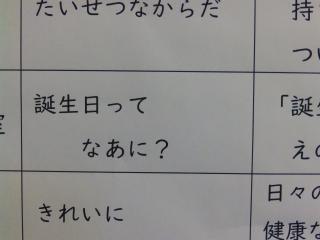 たいせつなからだ
誕生日って
なあに？
きれいに
持
つい
「誕生
えの
日々の
健康な